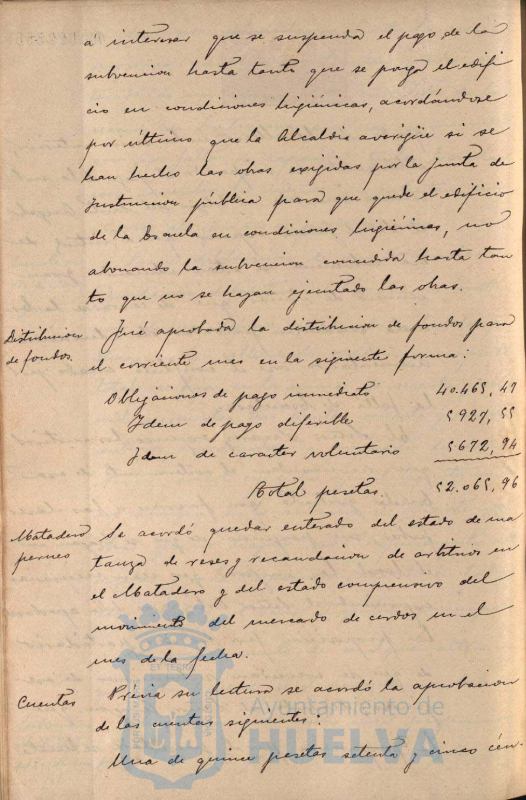 á interesar que se suspenda el pago de la
subvencion hasta tanto que se ponga el edifi
cio en condiciones higiénicas, acordándose
por último que la Alcaldia averigüe si se
han hecho las obras exigidas por la Junta de
Instruccion pública para que quede el edificio
de la Escuela en condiciones higiénicas, no
abonando la subvencion concedida hasta tan
to que no se hayan ejecutado las obras.
Distribucion
de fondos.
Fué aprobada la distribucion de fondos para
el corriente mes en la siguiente forma:
Obligaciones de pago inmediato 40.465, 47
Idem de pago diferible 5927, 55
Idem de caracter voluntario 5672, 94
Total pesetas. 52.065, 96
Matadero
perneo
Se acordó quedar enterado del estado de ma
tanza de reses y recaudacion de arbitrios en
el Matadero y del estado comprensivo del
movimiento del mercado de cerdos en el
mes de la fecha.
Cuentas
Prévia su lectura se acordó la aprobacion
de las cuentas siguientes:
Una de quince pesetas setenta y cinco cén-
Ayuntamiento de
HUELVA